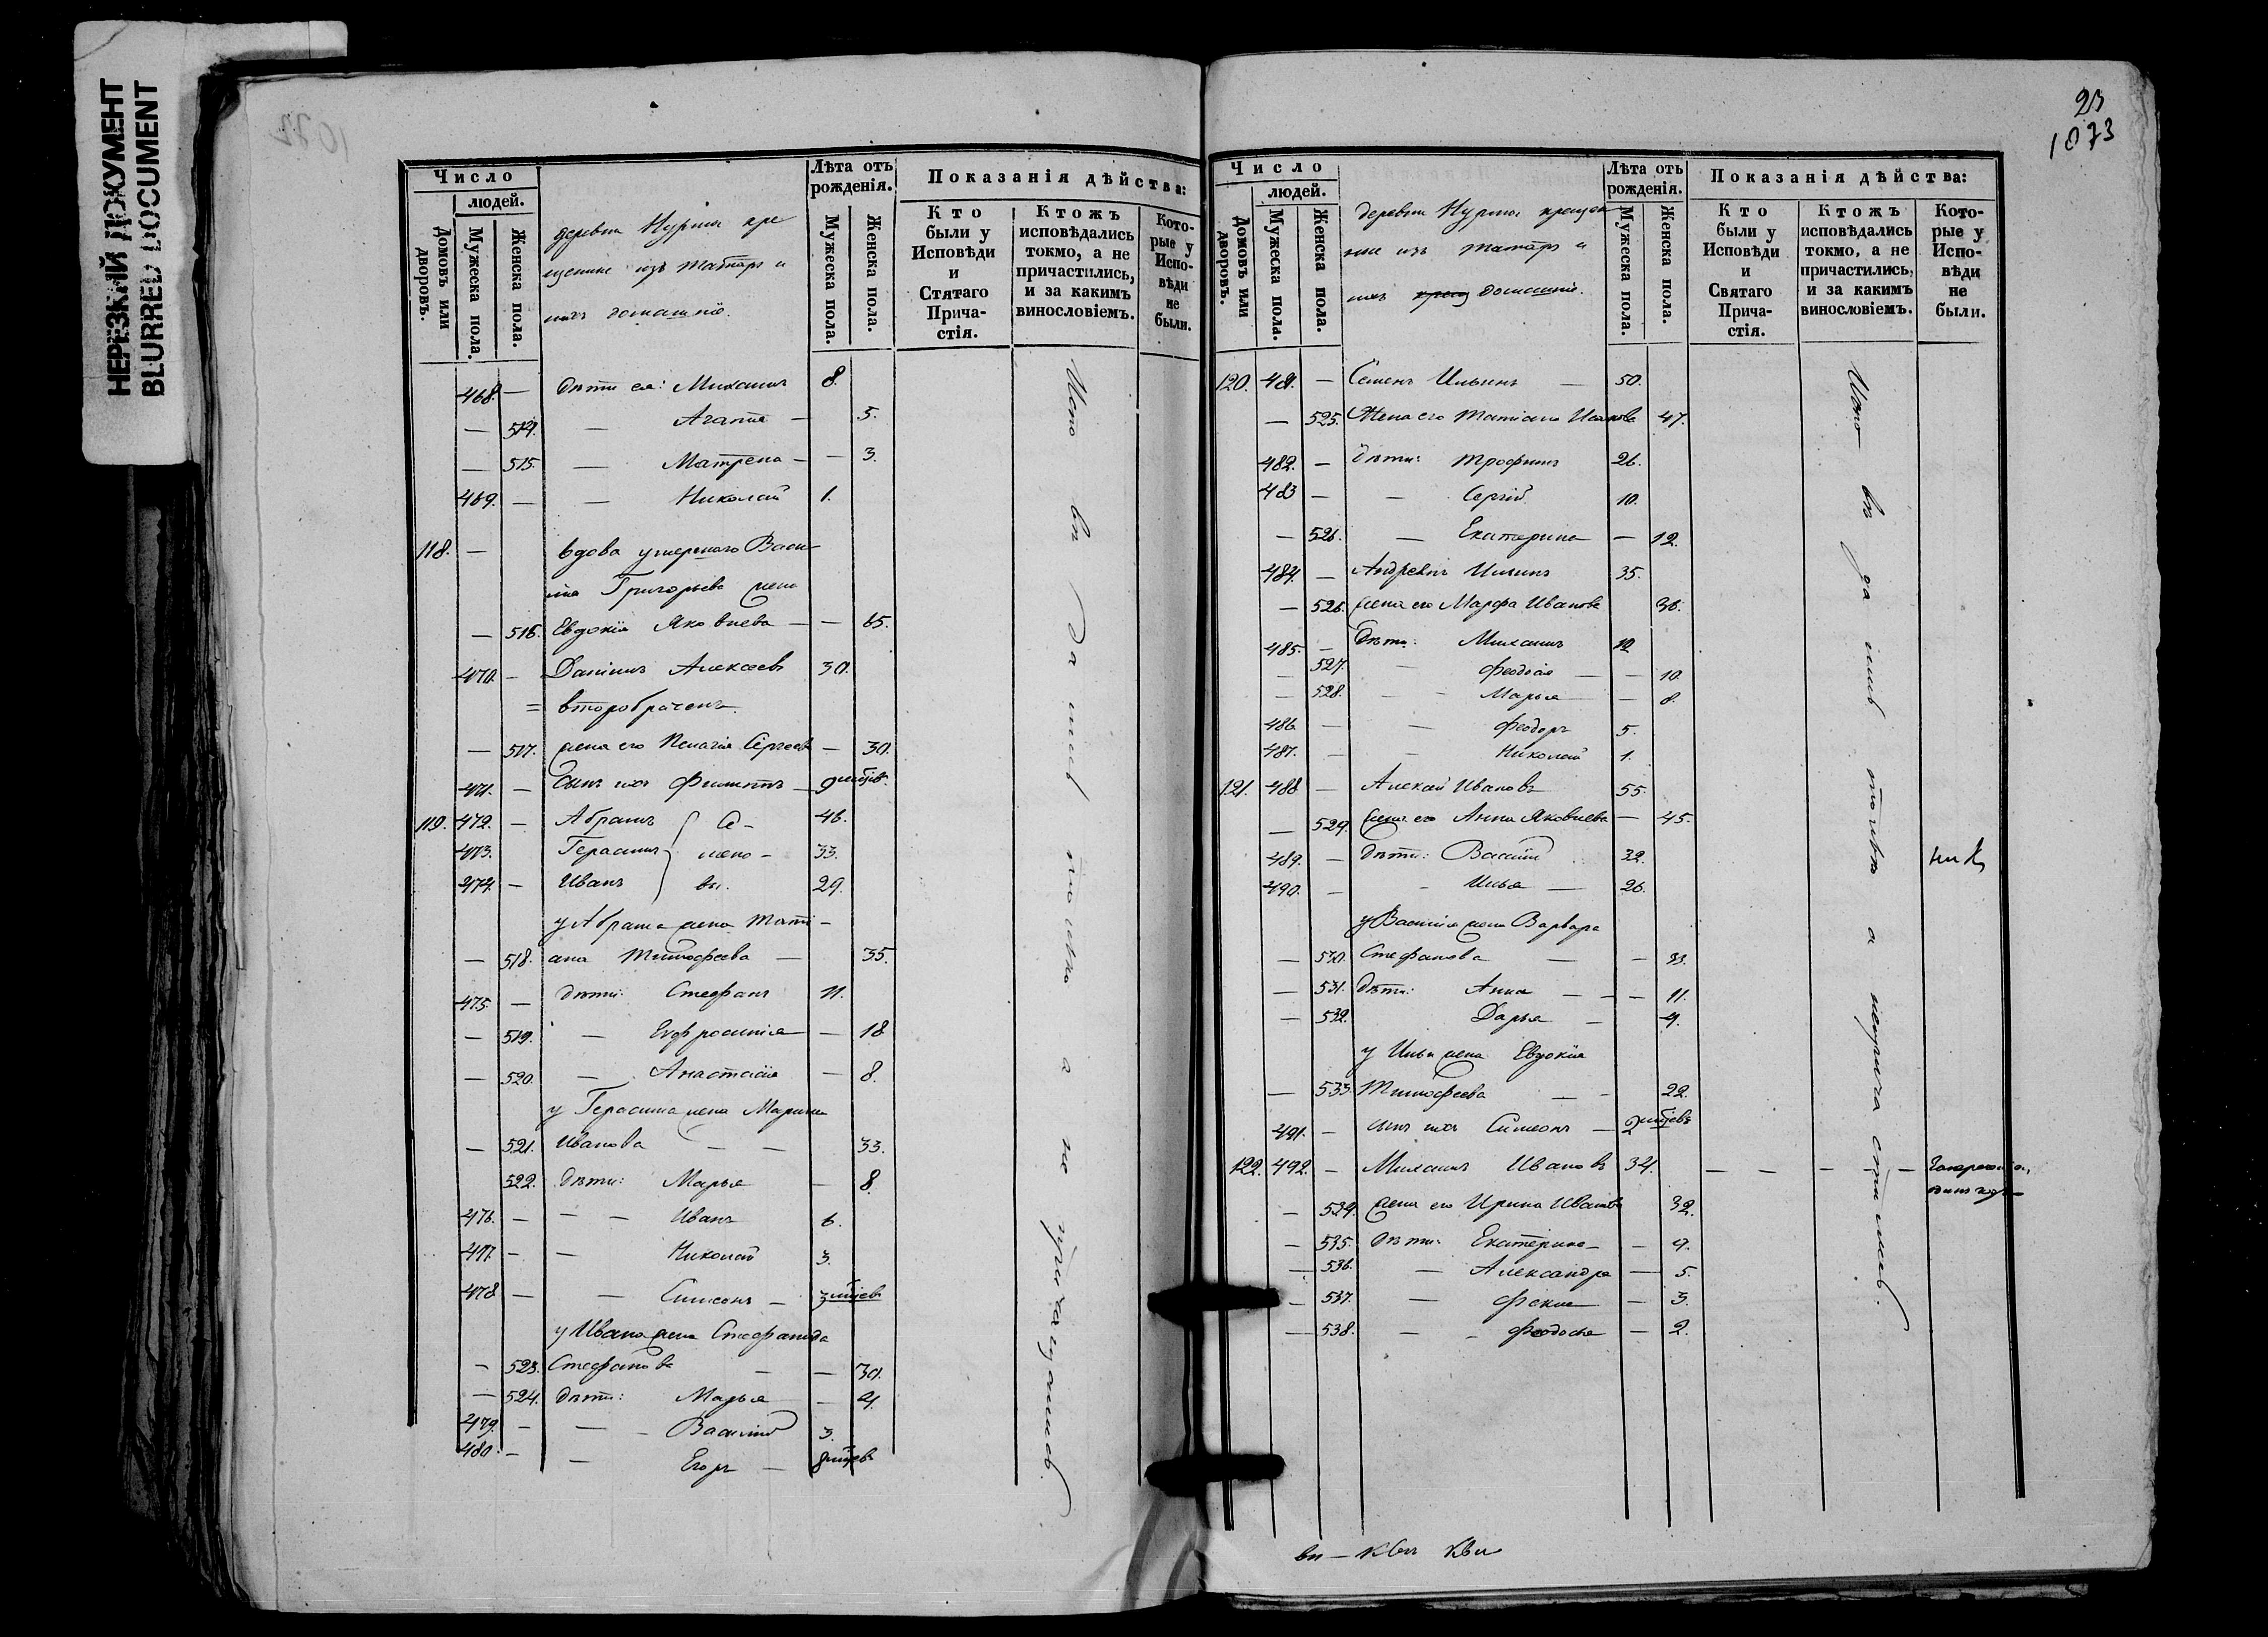 НЕРЕЗКИЙ ДОКУМЕНТ
BLURRED DOCUMENT
Число
людей.
Домовъ или дворовъ.
Мужеска пола.
Женска пола.
деревни Нурма кре
щеные изъ татаръ и
ихъ домашніе.
Лѣта отъ рожденія.
Мужеска пола.
Женска пола.
Показанія дѣйства:
Кто были у Исповѣди и Стятаго Прича-стія.
Ктожъ исповѣдались токмо, а не причастились, и за какимъ винословіемъ.
Кото-рые у Испо-вѣди не были.
468. — дѣти ея: Михаилъ 8.
— 514. — Агапія — 5.
— 515. — Матрена — — 3.
469. — — Николай 1.
118. — вдова умершаго Васи
лія Григорьева жена
— 516. Евдокія Яковлева — — 65.
470. — Даніилъ Алексеевъ 30.
= второбраченъ
— 517. жена его Пелагія Сергѣев — 30.
471. — сынъ ихъ Филиппъ — 9 мѣсяцев.
119. 472. — Абрамъ Се- 46.
473. Герасимъ мено- 33.
474. — Иванъ вы. 29.
у Абрама жена Тати-
— 518. ана Тимофеева — 35.
475. — дѣти: Стефанъ 11.
— 519. — Евфросинія — 18
— 520. — Анастасія — 8.
у Герасима жена Марина
— 521. Иванова — — 33.
522. дѣти: Марья — 8.
476. — — — Иванъ 6.
477. — — Николай 3.
478 — — Симеонъ — 3 мѣсяцев
у Ивана жена Стефанида
— 523. Стефанова — — 30.
— 524. дѣти: Марья — 4.
479. — — Василій 3.
480. — — Егоръ — 8 мѣсяцевъ
а не причащались
23
1073
Число
людей.
Домовъ или дворовъ.
Мужеска пола.
Женска пола.
деревни Нурма крещен
ные изъ татаръ и
ихъ домашніе.
Лѣта отъ рожденія.
Мужеска пола.
Женска пола.
Показанія дѣйства:
Кто были у Исповѣди и Святаго Прича-стія.
Ктожъ исповѣдались токмо, а не причастились, и за какимъ винословіемъ.
Кото-рые у Испо-вѣди не были.
120. 481. — Семенъ Ильинъ — 50.
— 525. Жена его Татіана Исакова 47.
482. — дѣти: Трофимъ 26.
483 — — Сергій 10.
— 526. — Екатерина — 12.
484. — Андрей Ильинъ 35.
— 526. жена его Марфа Иванова 36.
485. — дѣти: Михаилъ 12
— 527. — Феодосія — — 10.
— 528. — — Марья — 8.
486. — — Феодоръ 5.
487. — — Николай 1.
121. 488. — Алексій Ивановъ 55.
— 529. жена его Анна Яковлева — 45.
489. — дѣти: Василій 32.
490. — — Илья — 26.
у Василія жена Варвара
— 530. Стефанова — — 33.
— 531. дѣти: Анна — — — 11.
— 532. Дарья — 4.
у Ильи жена Евдокія
— 533. Тимофеева — — 22.
491. — сынъ ихъ Симеонъ — 2 мѣсяцевъ
122. 492. — Михаилъ Ивановъ 34. — — — —
— 534. жена его Ирина Иванов 32.
— 535. дѣти: Екатерина — — 9.
— 536. — Александра — 5.
— 537. — Фекла — 3.
— 538. — — Феодосья — 2.